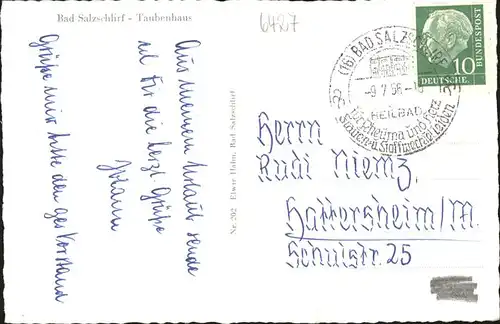 Bad Salzschlirf - Taubenhaus
6427
Aus meinem Urlaub sende
ich Dir die besten Grüße
Johann
Grüße mir bitte den ges. Vorstand
Nr. 202 Elwir Hahn, Bad Salzschlirf
(16) BAD SALZSCHLIRF
-9.7.56.-1
HEILBAD
für Rheuma und Herz
Frauen-u. Stoffwechselleiden
10
DEUTSCHE
BUNDESPOST
Herrn
Rudi Niemz,
Hattersheim/M.
Schulstr. 25